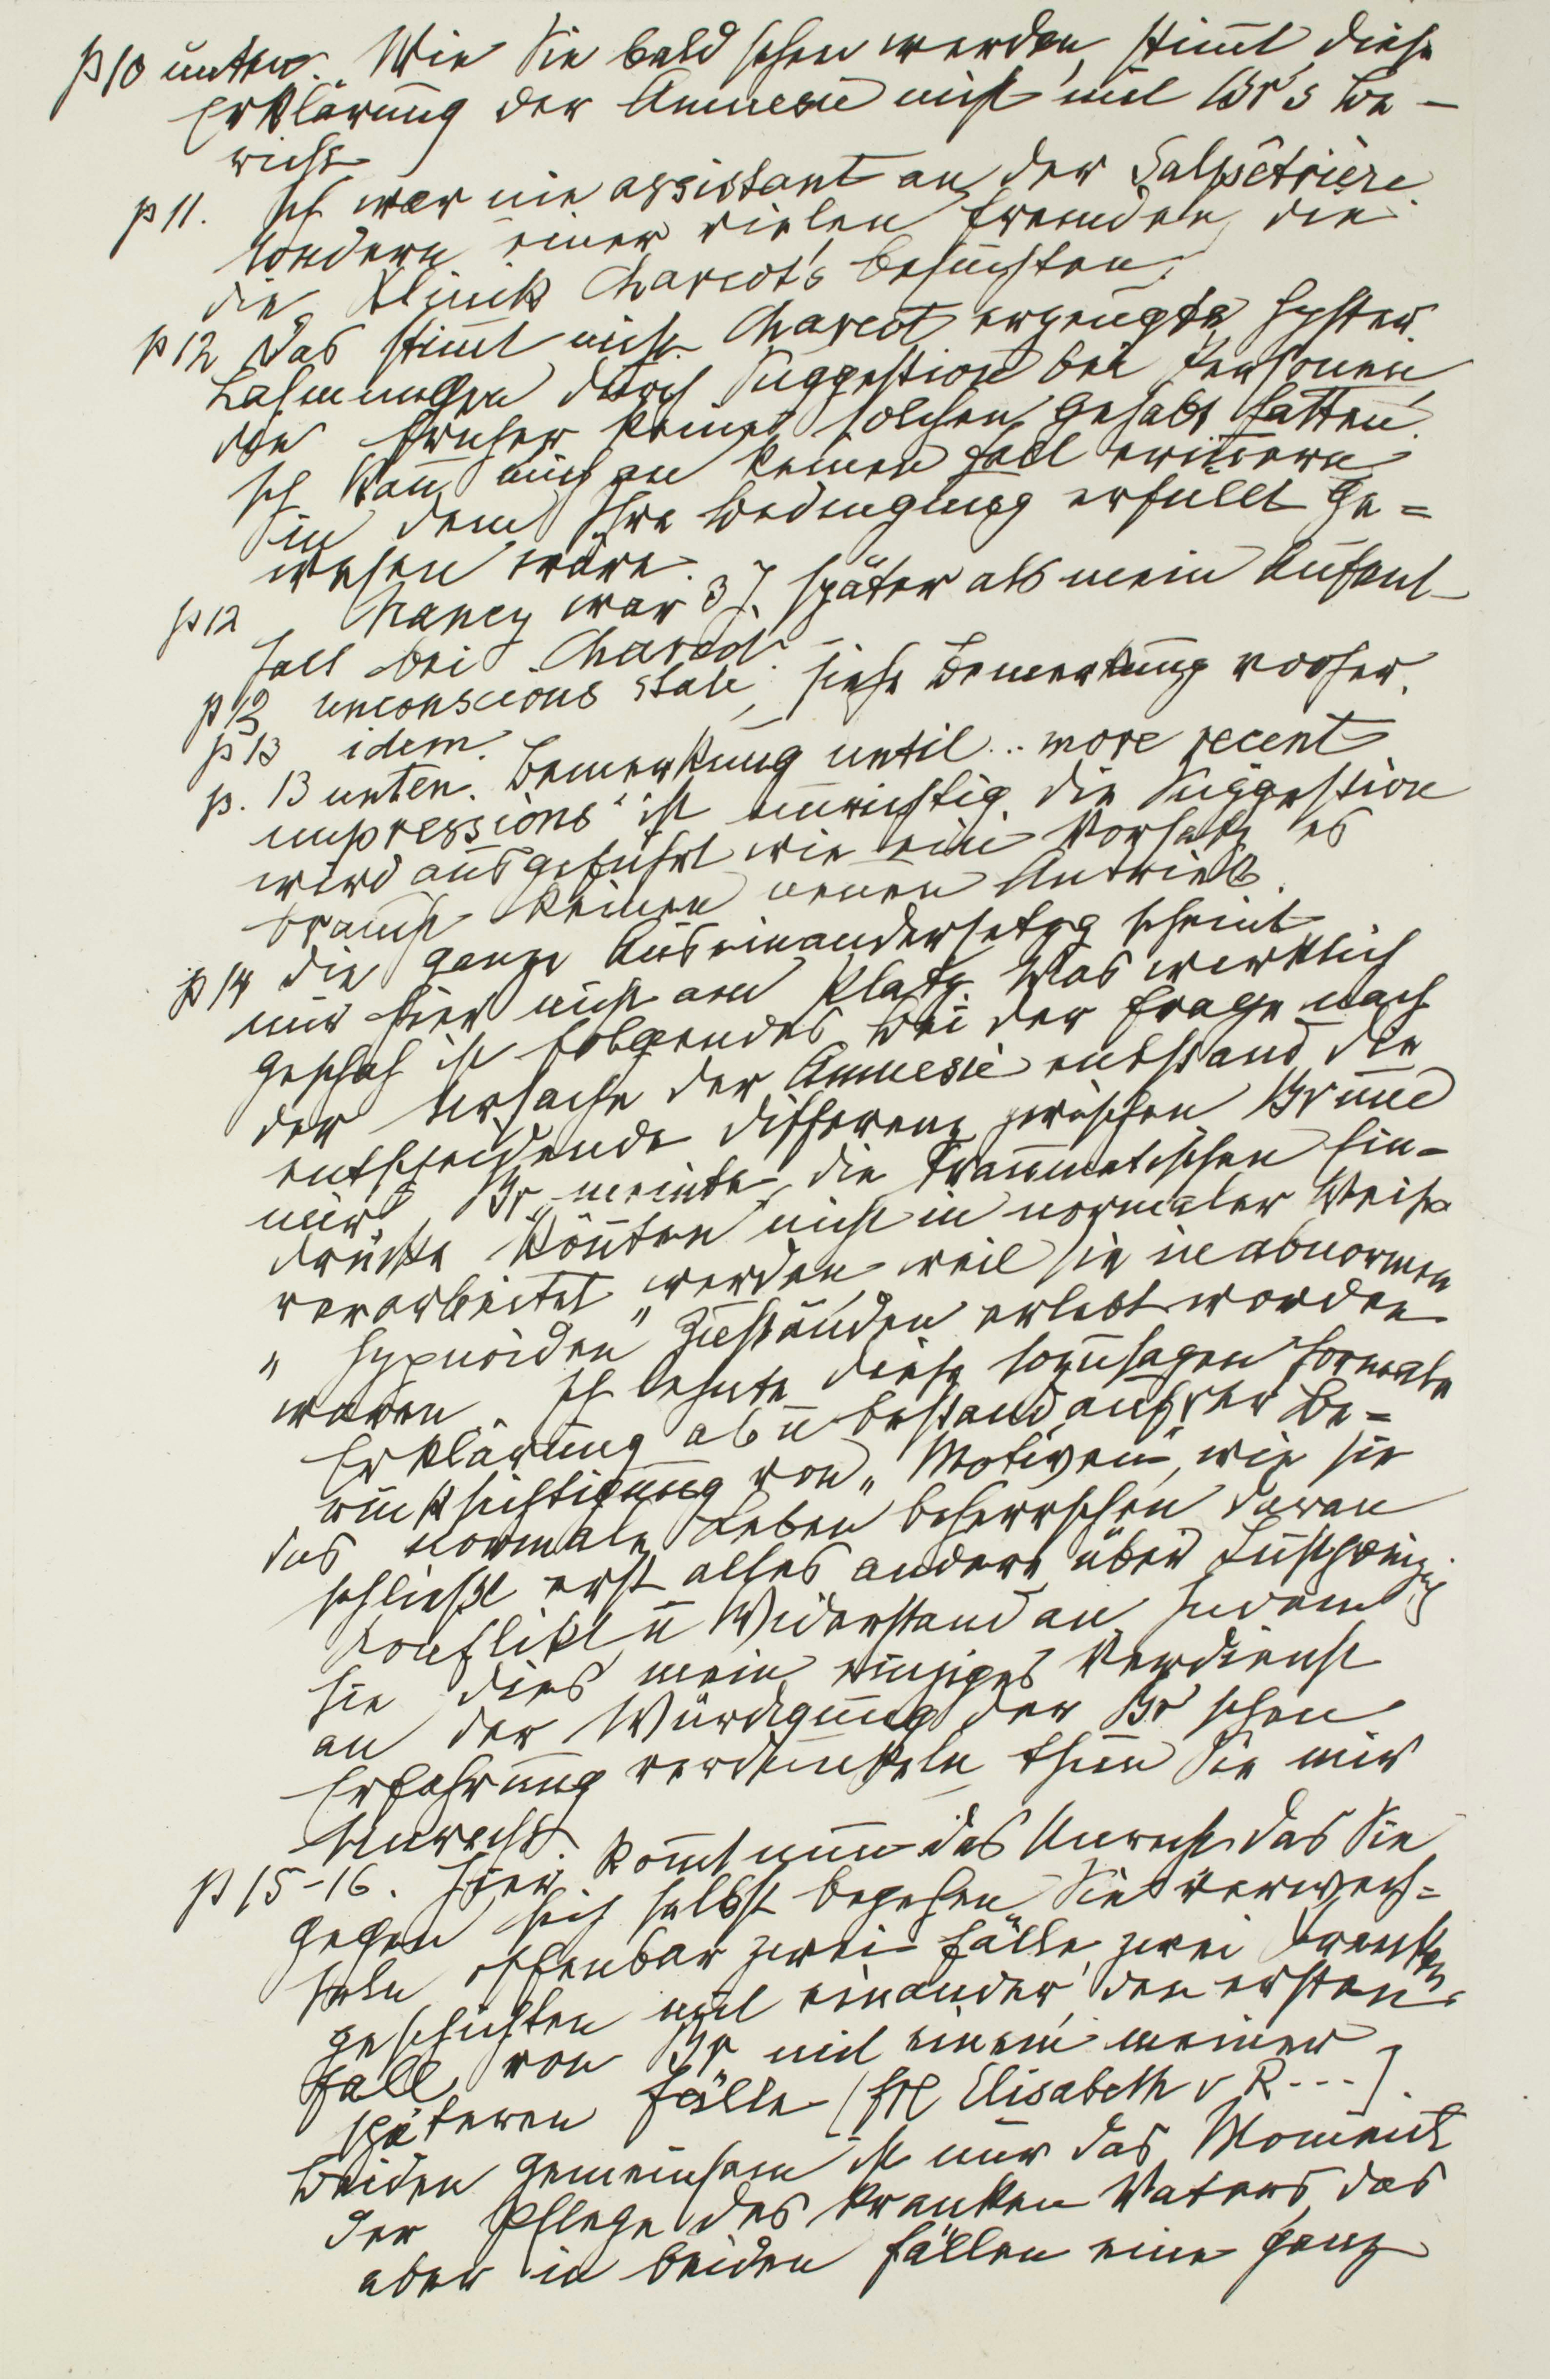 p 10 unten. Wie Sie bald sehen werden, stim̄t diese
Erklärung der Amnesie nicht mit Br's Be-
richt
p 11. Ich war nie assistant an der Salpêtrière
sondern einer vielen Fremden, die
die Klinik Charcot's besuchten.
p 12 Das stim̄t nicht. Charcot erzeugte hyster.
Lähmungen durch Suggestion bei Personen,
die früher keine solchen gehabt hatten.
Ich kan̄ mich an keinen Fall erin̄ern
in dem Ihre Bedingung erfüllt ge=
wesen wäre.
p 12 Nancy war 3 J. später als mein Aufent-
halt bei Charcot.
p 12 unconscious state, siehe Bemerkung vorher.
p 13 idem.
p. 13 unten. Bemerkung until... more recent
impressions" ist unrichtig die Suggestion
wird ausgeführt wie ein Vorsatz es
braucht keinen neuen Antrieb.
p 14 die ganze Auseinandersetzg scheint
mir hier nicht am Platz. Was wirklich
geschah ist folgendes Bei der Frage nach
der Ursache der Amnesie entstand die
entscheidende Differenz zwischen Br und
mir. Br meinte, die traumatischen Ein-
drücke kön̄ten nicht in normaler Weise
verarbeitet werden, weil sie in abnormen
„hypnoiden" Zuständen erlebt worden
waren. Ich lehnte diese sozusagen formale
Erklärung ab u bestand auf der Be=
rücksichtigung von „Motiven", wie sie
das normale Leben beherrschen daran
schließt erst alles andere über Lustprinzip
Konflikt u Widerstand an Indem
Sie dies mein einziges Verdienst
an der Würdigung der Br'schen
Erfahrung verdunkeln thun Sie mir
Unrecht.
p 15-16. Hier kom̄t nun das Unrecht das Sie
gegen sich selbst begehen. Sie verwech=
seln offenbar zwei Fälle, zwei Kranken
geschichten mit einander, den ersten
Fall von Br mit einem meiner
späteren Fälle (Frl Elisabeth v R---).
Beiden gemeinsam ist nur das Moment
der Pflege des kranken Vaters, das
aber in beiden Fällen eine ganz